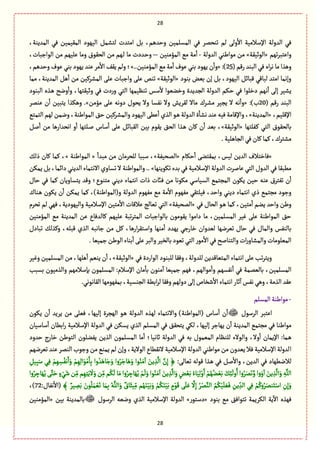 في الدولة الإسلامية الأولى لم تنحصر في المسلمين وحدهم، بل امتدت لتشمل اليهود المقيمين في المدينة،
واعتبرتهم «الوثيقة» من مواطني الدولة - أمة مع المؤمنين – وحددت ما لهم من الحقوق وما عليهم من الواجبات،
وهذا ما نراه في البند رقم (25): «وأن يهود بني عوف أمة مع المؤمنين..» ؛ ولم يقف الأمر عند يهود بني عوف وحدهم،
وإنما امتد لباقي قبائل اليهود، بل إن بعض بنود «الوثيقة» تنص على واجبات على المشركين من أهل المدينة، مما
يشير إلى أنهم دخلوا في حكم الدولة الجديدة وخضعوا لأسس تنظيمها التي وردت في وثيقتها، وأوضح هذه البنود
البند رقم (20ب): «وأنه لا يجير مشرك مالا لقريش ولا نفسا ولا يحول دونه على مؤمن». وهكذا يتبين أن عنصر
الإقليم، «المدينة»، والإقامة فيه عند نشأة الدولة هو الذي أعطى اليهود والمشركين حق المواطنة، وضمن لهم التمتع
بالحقوق التي كفلتها «الوثيقة»، بعد أن كان هذا الحق يقوم بين القبائل على أساس صلتها أو انحدارها من أصل
مشترك، كما كان في الجاهلية .
«فاختلاف الدين ليس ، بمقتضى أحكام «الصحيفة» ، سببا للحرمان من مبدأ « المواطنة »، كما كان ذلك
مطبقا في الدول التي عاصرت الدولة الإسلامية في بدء تكوينها» .. والمواطنة لا تساوي الانتماء الديني دائما، بل يمكن
أن تفترق عنه حين يكون المجتمع السياسي مكونا من فئات ذات انتماء ديني متنوع؛ وقد يتساويان كما في حال
وجود مجتمع ذي انتماء ديني واحد، فيلتقي مفهوم الأمة مع مفهوم الدولة و(المواطنة)، كما يمكن أن يكون هناك
وطن واحد يضم أمتين، كما هو الحال في «الصحيفة» التي تعالج علاقات الأمتين الإسلامية واليهودية، فهي لم تحرم
حق المواطنة على غير المسلمين، ما داموا يقومون بالواجبات المترتبة عليهم كالدفاع عن المدينة مع المؤمنين
بالنفس والمال في حال تعرضها لعدوان خارجي يهدد أمنها واستقرارها، كل من جانبه الذي قبله، وكذلك تبادل
المعلومات والمشاورات والتناصح في الأمور التي تعود بالخير والبر على أبناء الوطن جميعا .
ويترتب على انتماء المتعاقدين للدولة، وفقا للبنود الواردة في «الوثيقة» ، أن ينعم أهلها، من المسلمين وغير
المسلمين، بالعصمة في أنفسهم وأموالهم، فهم جميعا آمنون بأمان الإسلام: المسلمون بإسلامهم والذميون بسبب
عقد الذمة، وهي نفس آثار انتماء الأشخاص إلى دولهم وفقا لرابطة الجنسية، بمفهومها القانوني.
- مواطنة المسلم
اعتبر الرسول ﷺ أن أساس (المواطنة) والانتماء لهذه الدولة هو الهجرة إليها، فعلى من يريد أن يكون
مواطنا في مجتمع المدينة أن يهاجر إليها، لكي يتحقق في المسلم الذي يسكن في الدولة الإسلامية رابطان أساسيان
هما: الإيمان أولا، والولاء للنظام المعمول به في الدولة ثانيا ؛ أما المسلمون الذين يفضلون التوطن خارج حدود
الدولة الإسلامية فلا يعدون من مواطني الدولة الإسلامية لانقطاع الولاية، وإن لم يمنع من وجوب النصر عند تعرضهم
للاضطهاد في الدين، والأصل في هذا قوله تعالى: ﴿ إِنَّ الَّذِينَ آمَنُوا وَهَاجَرُوا وَجَاهَدُوا بِأَمْوَالِهِمْ وَأَنْفُسِهِمْ فِي سَبِيلِ
اللَّهِ وَالَّذِينَ آوَوْا وَنَصَرُوا أُولَئِكَ بَعْضُهُمْ أَوْلِيَاءُ بَعْضٍ وَالَّذِينَ آمَنُوا وَلَمْ يُهَاجِرُوا مَا لَكُمْ مِنْ وَلَايَتِهِمْ مِنْ شَيْءٍ حَتَّى يُهَاجِرُوا
وَإِنِ اسْتَنْصَرُوكُمْ فِي الدِّينِ فَعَلَيْكُمُ النَّصْرُ إِلَّا عَلَى قَوْمٍ بَيْنَكُمْ وَبَيْنَهُمْ مِيثَاقٌ وَاللَّهُ بِمَا تَعْمَلُونَ بَصِيرٌ ﴾ (الأنفال:72)،
فهذه الآية الكريمة تتوافق مع بنود «دستور» الدولة الإسلامية الذي وضعه الرسول ﷺ بالمدينة بين «المؤمنين